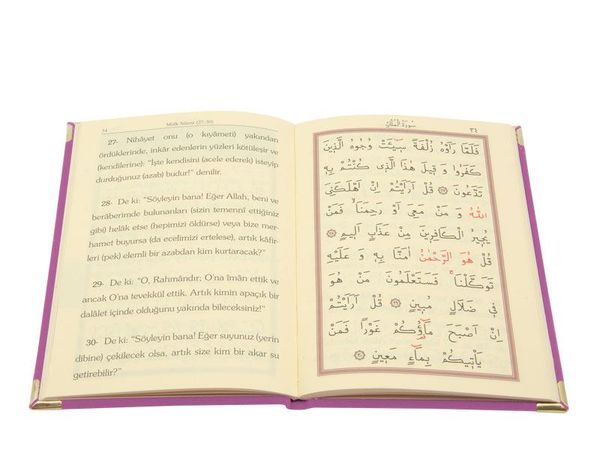 34
Mülk Sûresi (27-30)
27- Nihâyet onu (o kıyameti) yakından
gördüklerinde, inkâr edenlerin yüzleri kötüleşir ve
(kendilerine): “İşte kendisini (acele ederek) isteyip
durduğunuz (azab) budur!” denilir.
28- De ki: “Söyleyin bana! Eğer Allah, beni ve
berâberimde bulunanları (sizin temenni ettiğiniz
gibi) helâk etse (hepimizi öldürse) veya bize mer-
hamet buyursa (da ecelimizi ertelese), artık kâfir-
leri (pek) elemli bir azabdan kim kurtaracak?”
29- De ki: “O, Rahmândır; O'na îman ettik ve
ancak O'na tevekkül ettik. Artık kimin apaçık bir
dalâlet içinde olduğunu yakında bileceksiniz!”
30- De ki: “Söyleyin bana! Eğer suyunuz (yerin
dibine) çekilecek olsa, artık size kim bir akar su
getirebilir?”
سُورَةُ الْمُلْكِ
٣٤
فَلَمَّا رَاَوْهُ زُلْفَةً سٖٓيـَٔتْ وُجُوهُ الَّذٖينَ
كَفَرُوا وَ قٖيلَ هٰذَا الَّذٖى كُنْتُمْ بِهٖ
تَدَّعُونَ ۞ قُلْ اَرَاَيْتُمْ اِنْ اَهْلَكَنِىَ
اللّٰهُ وَ مَنْ مَعِىَ اَوْ رَحِمَنَا ۙ فَمَنْ
يُجٖيرُ الْكَافِرٖينَ مِنْ عَذَابٍ اَلٖيمٍ ۞
قُلْ هُوَ الرَّحْمٰنُ اٰمَنَّا بِهٖ وَ عَلَيْهِ
تَوَكَّلْنَا ۚ فَسَتَعْلَمُونَ مَنْ هُوَ
فٖى ضَلَالٍ مُبٖينٍ ۞ قُلْ اَرَاَيْتُمْ
اِنْ اَصْبَحَ مَٓاؤُ۬كُمْ غَوْرًا فَمَنْ
يَاْتٖيكُمْ بِمَٓاءٍ مَعٖينٍ ۞